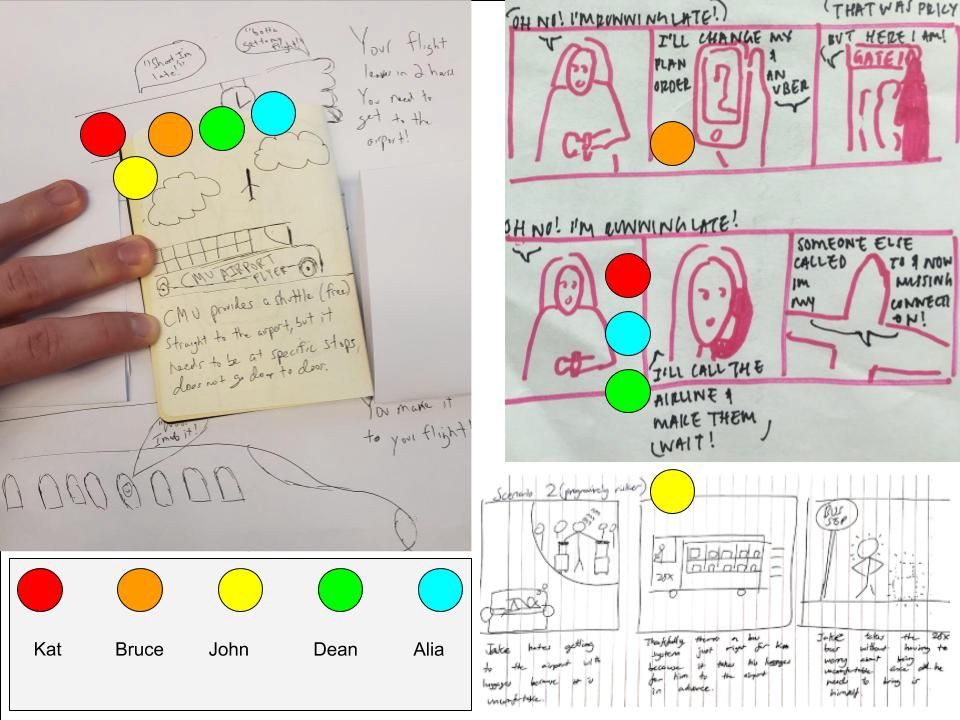 "Shoot I'm
late!"
"Gotta
get to my
flight!"
Your flight
leaves in 2 hours
You need to
get to the
airport!
CMU AIRPORT
FLYER
CMU provides a shuttle (free)
straight to the airport, but it
needs to be at specific stops,
does not go door to door.
I made it!
You make it
to your flight!
OH NO! I'M RUNNING LATE!
I'LL CHANGE MY
PLAN &
ORDER AN
UBER
(THAT WAS PRICY
BUT HERE I AM!
GATE 10
OH NO! I'M RUNNING LATE!
I'LL CALL THE
AIRLINE &
MAKE THEM
WAIT!
SOMEONE ELSE
CALLED TO & NOW
IM MISSING
MY CONNECTI
ON!
Scenario 2 (progressively riskier)
28X
BUS
STOP
Jake hates getting
to the airport with
luggages because it is
uncomfortable.
Thankfully theres a bus
system just right for him
because it takes his luggages
for him to the airport
in advance.
Jake takes the 28X
bus without having to
worry about being
uncomfortable since all he
needs to bring is
himself.
Kat
Bruce
John
Dean
Alia